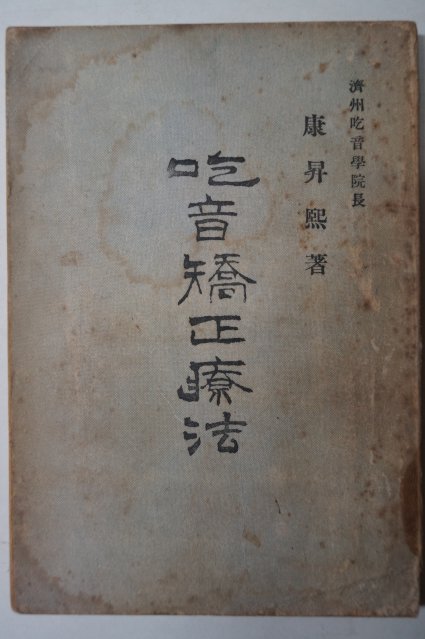 濟州吃音學院長
康昇熙著
吃音矯正療法